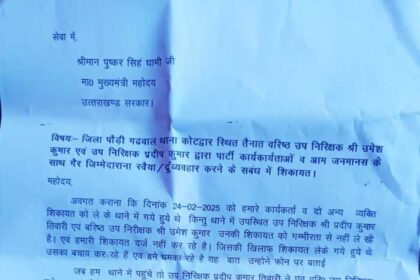 सेवा में,
श्रीमान पुष्कर सिहं धामी जी
मा0 मुख्यमंत्री महोदय
उत्तराखण्ड सरकार।
विषय:- जिला पौड़ी गढवाल थाना कोटद्वार स्थित तैनात वरिष्ठ उप निरिक्षक श्री उमेश
कुमार एवं उप निरिक्षक प्रदीप कुमार द्वारा पार्टी कार्यकार्यताओं व आम जनमानस के
साथ गैर जिम्मेदाराना रवैया/दुर्व्यवहार करने के सबंध में शिकायत।
महोदय,
अवगत कराना कि दिनांक 24-02-2025 को हमारे कार्यकर्ता व दो अन्य व्यक्ति
शिकायत को ले के थाने में गये हुये थे किन्तु थाने में उपस्थित उप निरीक्षक श्री प्रदीप कुमार
तिवारी एवं वरिष्ठ उप निरीक्षक श्री उमेश कुमार उनकी शिकायत को गम्भीरता से नही ले रहे
है। एवं हमारी शिकायत दर्ज नही कर रहे है। जिसकी खिलाफ शिकायत लेके गये हुये थे
उसका बचाव कर रहे हैं एवं हमे धमका रहे है यह बात उन्होने फोन पर बताई
जब हम थाने में पहुंचे तो उप निरिक्षक प्रदीप कुमार तिवारी ने एवं